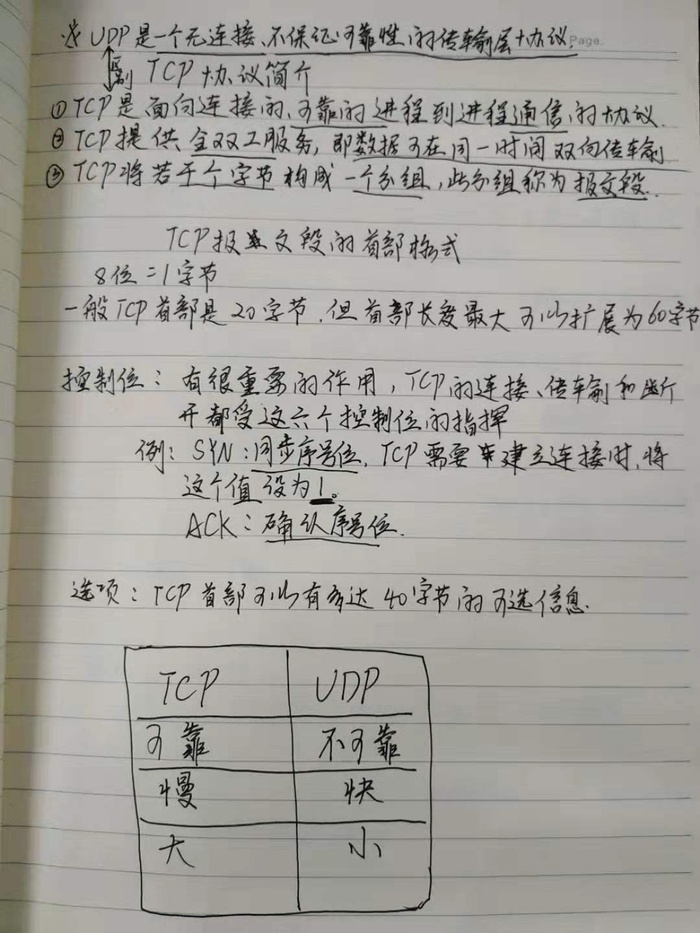 ※ UDP是一个无连接、不保证可靠性的传输层协议. Page.
区别 TCP协议简介
① TCP是面向连接的、可靠的进程到进程通信的协议.
② TCP提供全双工服务, 即数据可在同一时间双向传输
③ TCP将若干个字节构成一个分组, 此分组称为报文段.
TCP报文段的首部格式
8位=1字节
一般TCP首部是20字节, 但首部长度最大可以扩展为60字节
控制位: 有很重要的作用, TCP的连接、传输和断
开都受这六个控制位的指挥
例: SYN: 同步序号位, TCP需要建立连接时, 将
这个值设为1。
ACK: 确认序号位.
选项: TCP首部可以有多达40字节的可选信息.
TCP UDP
可靠 不可靠
慢 快
大 小